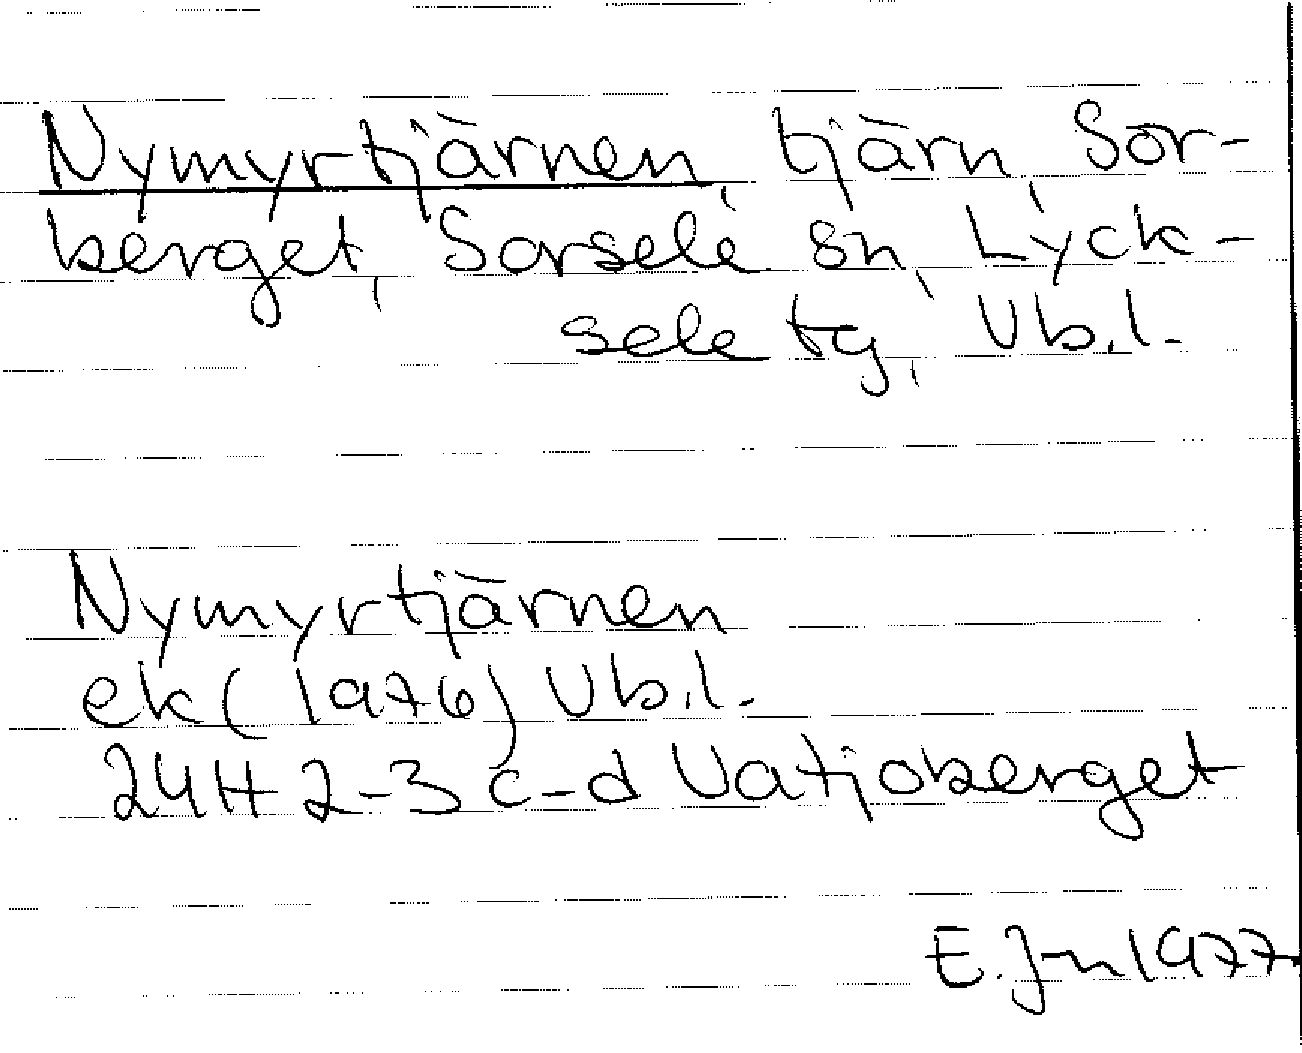 Nymyrtjärnen, tjärn, Sor-
berget, Sorsele sn, Lyck-
sele tg, Vb.l.
Nymyrtjärnen
ek (1976) Vb.l.
24H 2-3 c-d Vatjoberget
E. J-n 1977